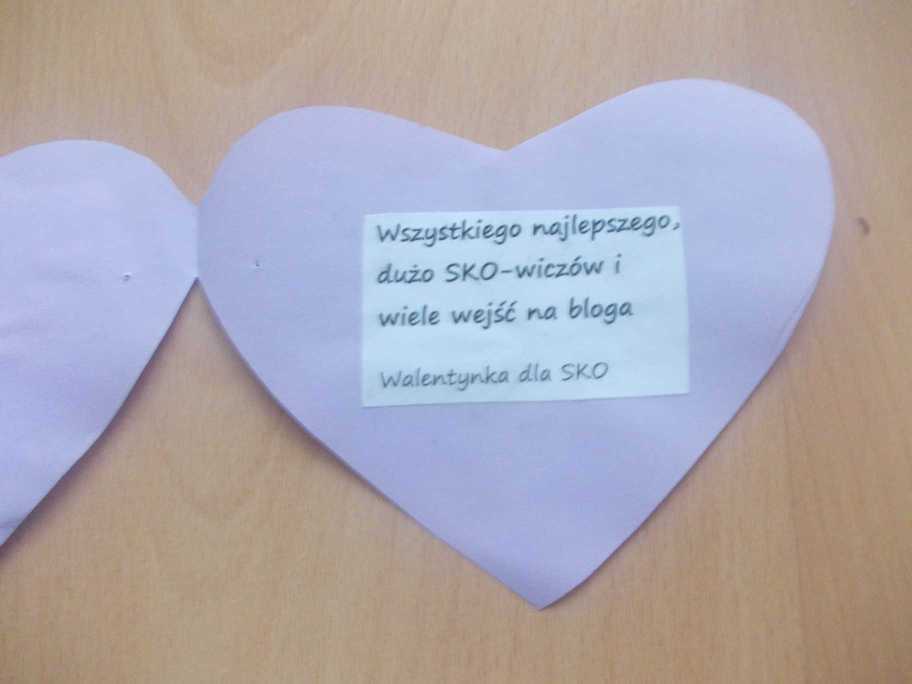 Wszystkiego najlepszego,
dużo SKO-wiczów i
wiele wejść na bloga
Walentynka dla SKO